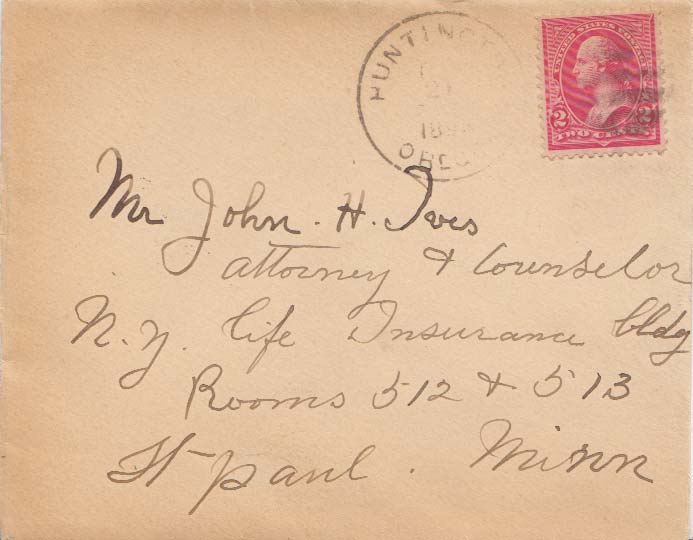 HUNTINGT
21
189
OREG
UNITED STATES POSTAGE
2 2
TWO CENTS
Mr John. H. Ives
attorney & Counselor
N. Y. life Insurance bldg
Rooms 512 & 513
St paul. Minn